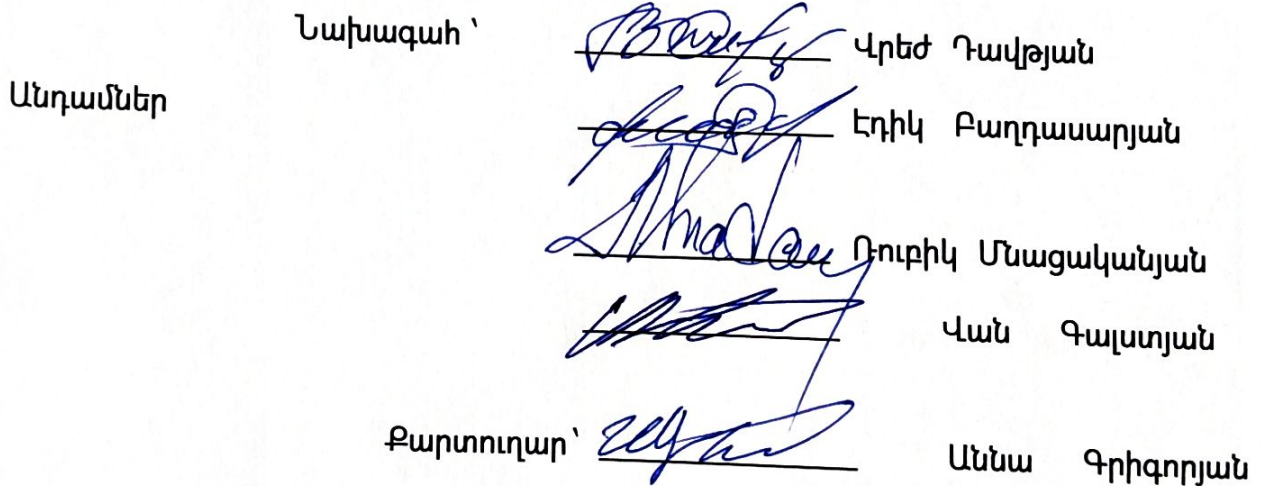 Նախագահ՝ Վրեժ Դավթյան
Անդամներ
Էդիկ Բաղդասարյան
Ռուբիկ Մնացականյան
Վան Գալստյան
Քարտուղար՝ Աննա Գրիգորյան